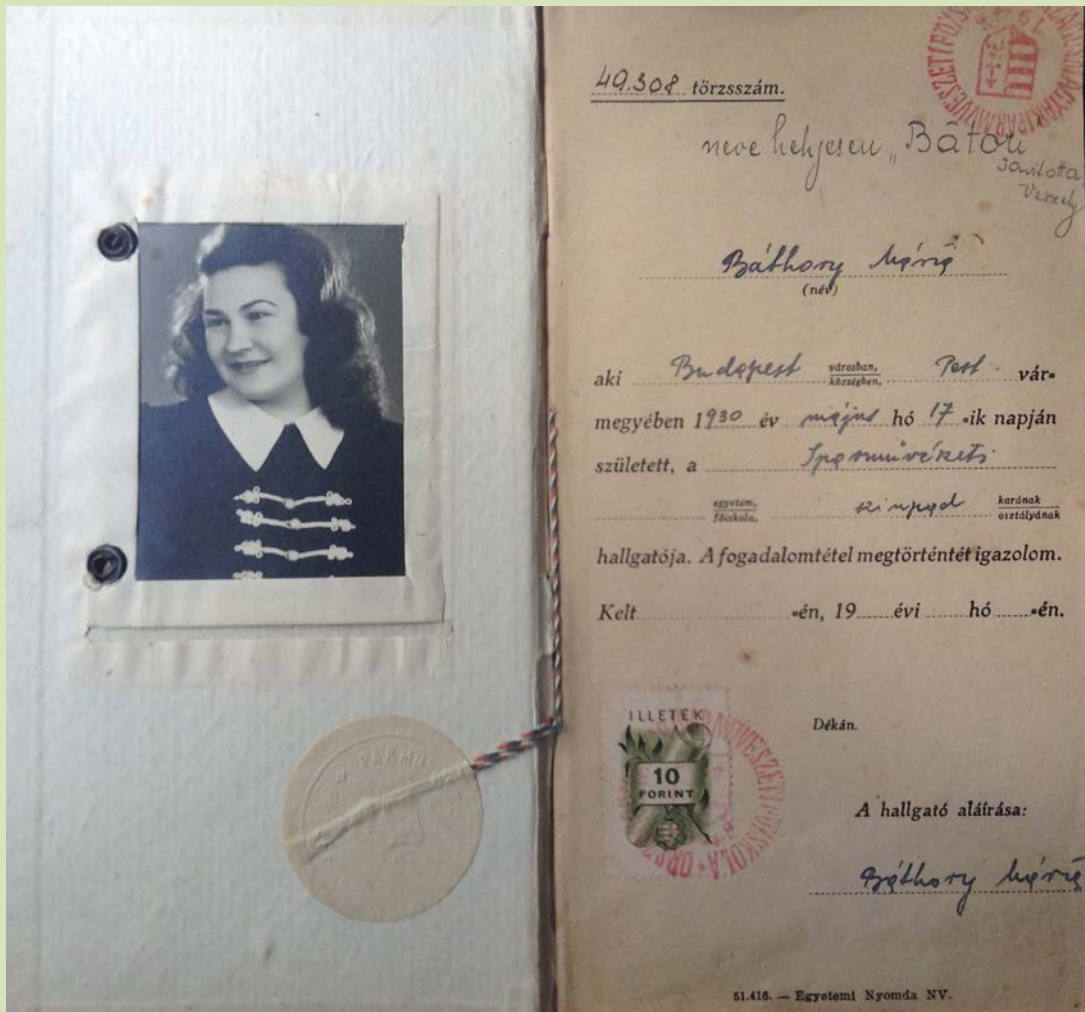 49.308 törzsszám.
neve helyesen „Bátori"
Javította
Báthory Mária
(név)
aki Budapest városban, községben, Pest vár-
megyében 1930 év május hó 17-ik napján
született, a Iparművészeti
egyetem, főiskola, színpad karának osztályának
hallgatója. A fogadalomtétel megtörténtét igazolom.
Kelt -én, 19 évi hó -én.
ILLETÉK
10
FORINT
Dékán.
A hallgató aláírása:
Báthory Mária
51.416. — Egyetemi Nyomda NV.